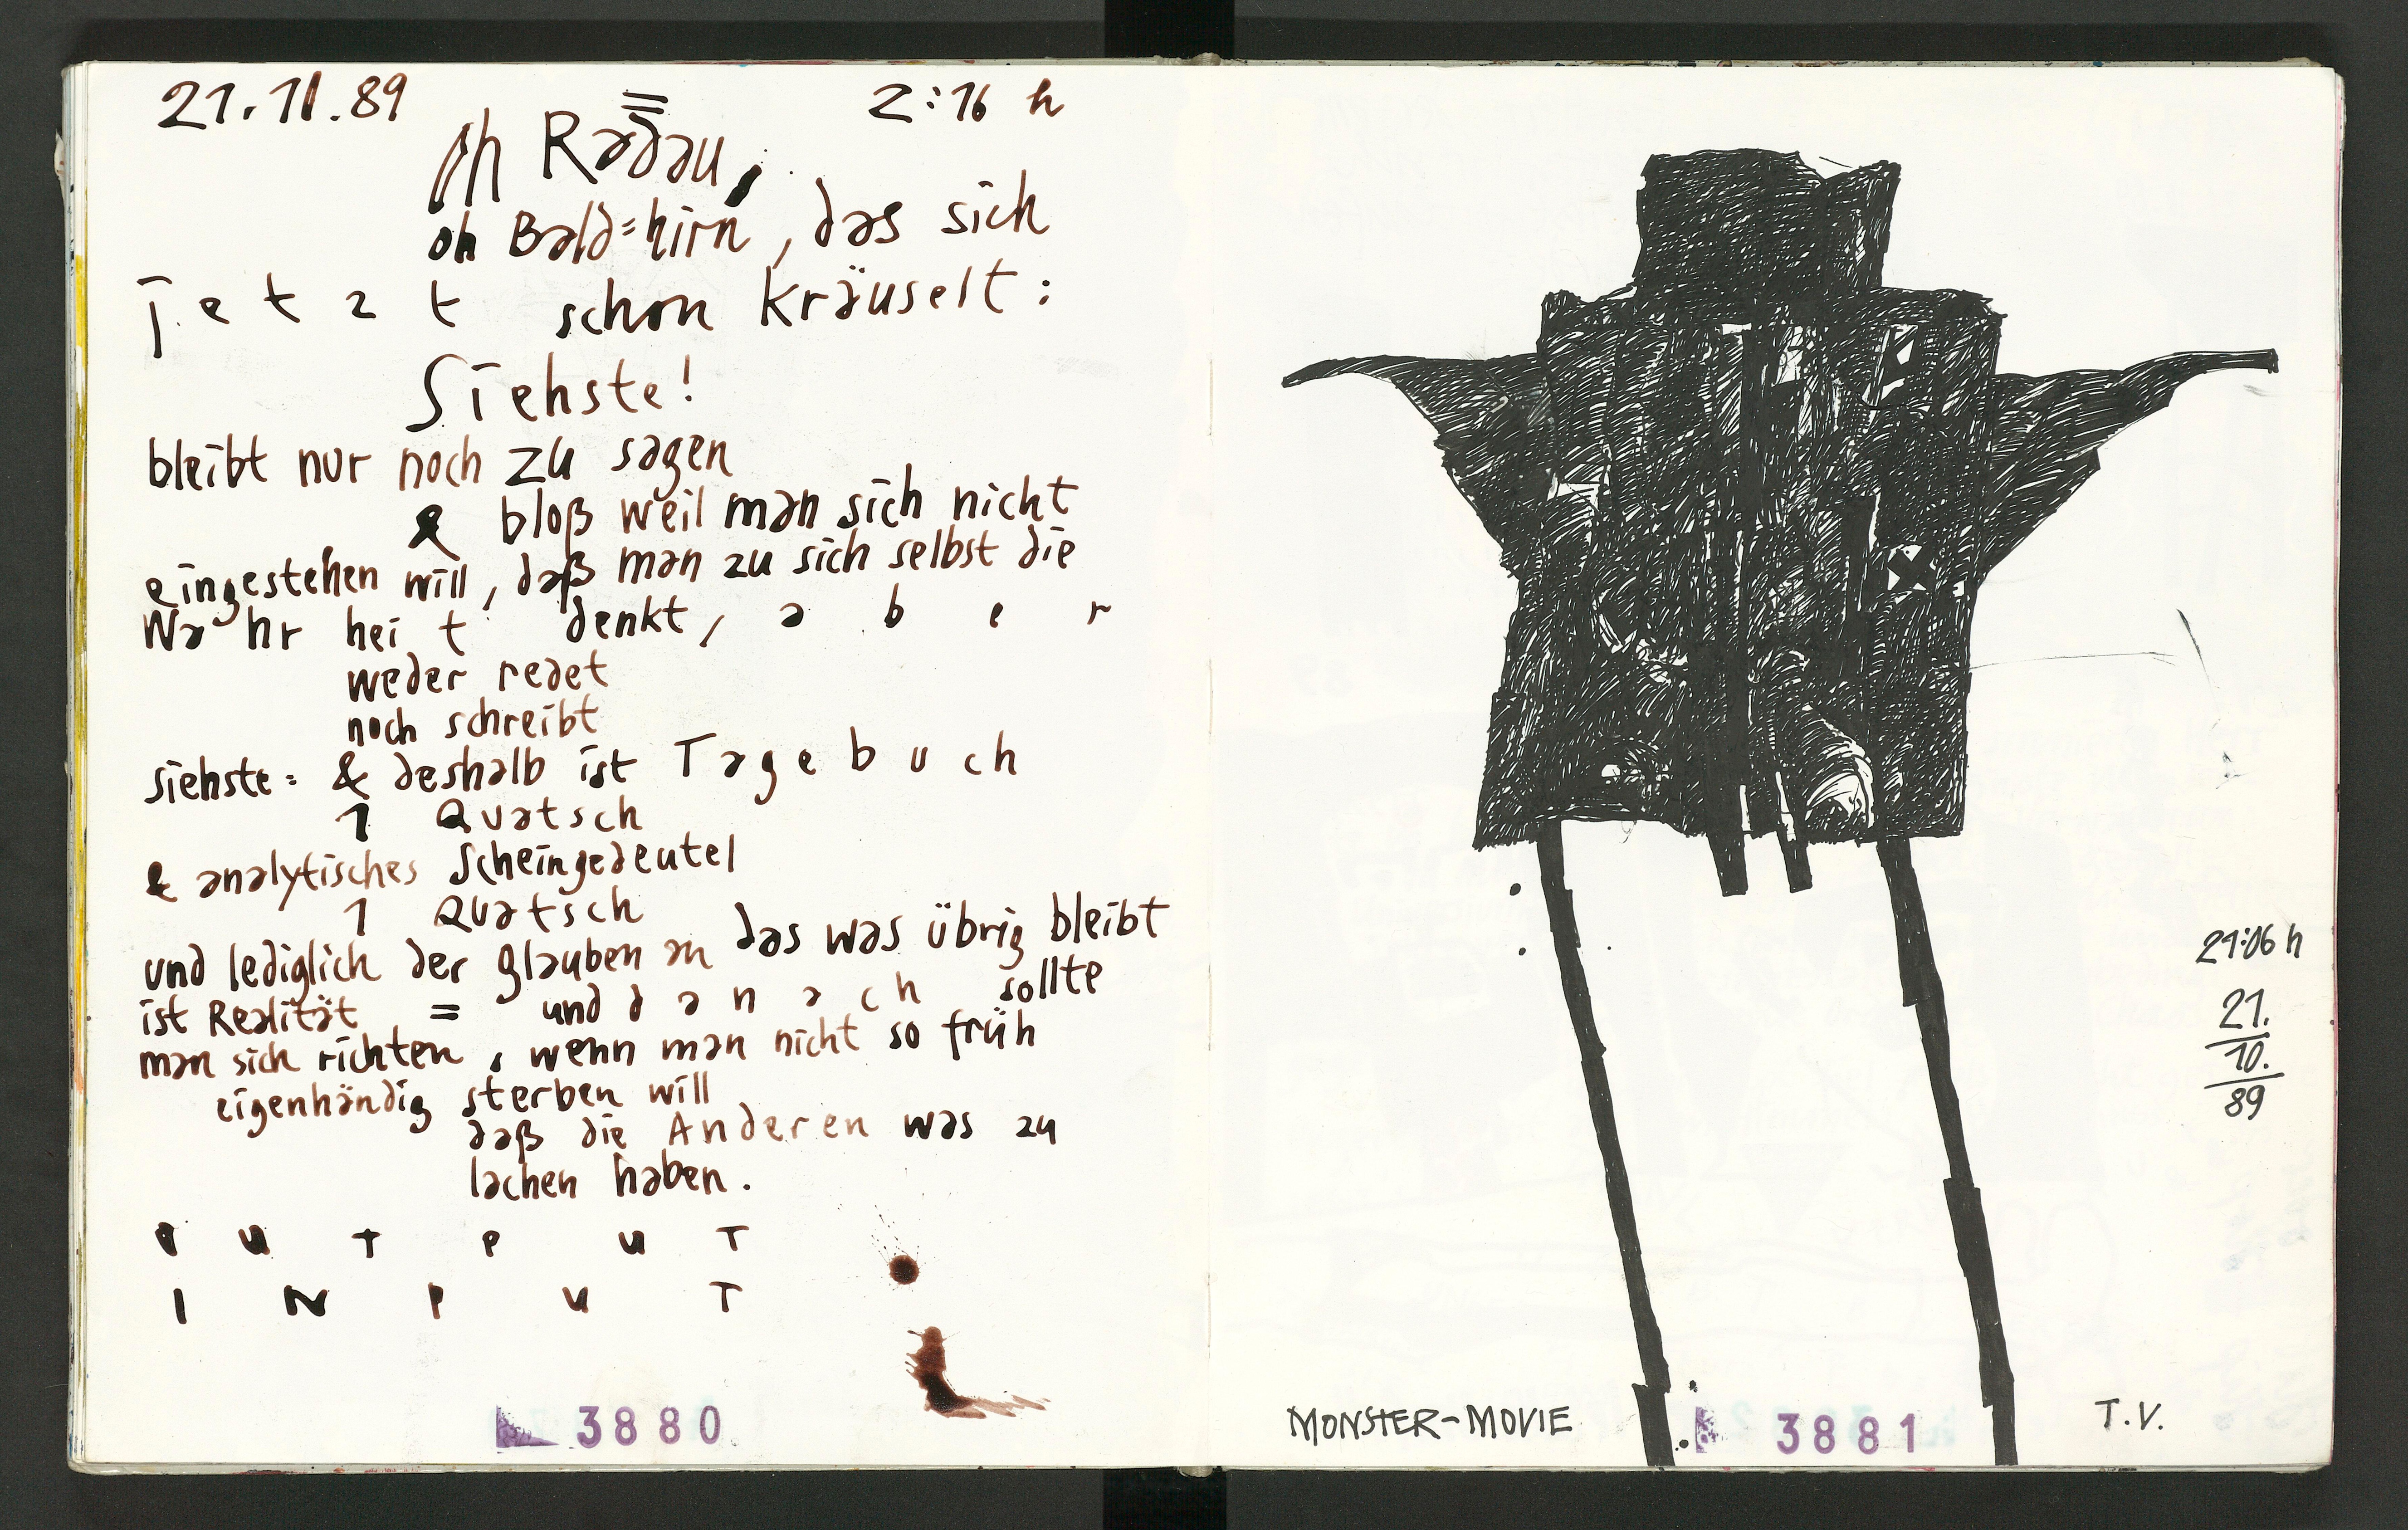 21.11.89 2:16 h
oh Radau,
oh Bald=hirn, das sich
jetzt schon kräuselt:
Siehste!
bleibt nur noch zu sagen
& bloß weil man sich nicht
eingestehen will, daß man zu sich selbst die
Wahrheit denkt, aber
weder redet
noch schreibt
siehste: & deshalb ist Tagebuch
1 Quatsch
& analytisches Scheingedeutel
1 Quatsch
und lediglich der Glauben an das was übrig bleibt
ist Realität = und danach sollte
man sich richten, wenn man nicht so früh
eigenhändig sterben will
daß die Anderen was zu
lachen haben.
OUTPUT
INPUT
3880
21:06 h
21.
10.
89
MONSTER-MOVIE
3881
T.V.